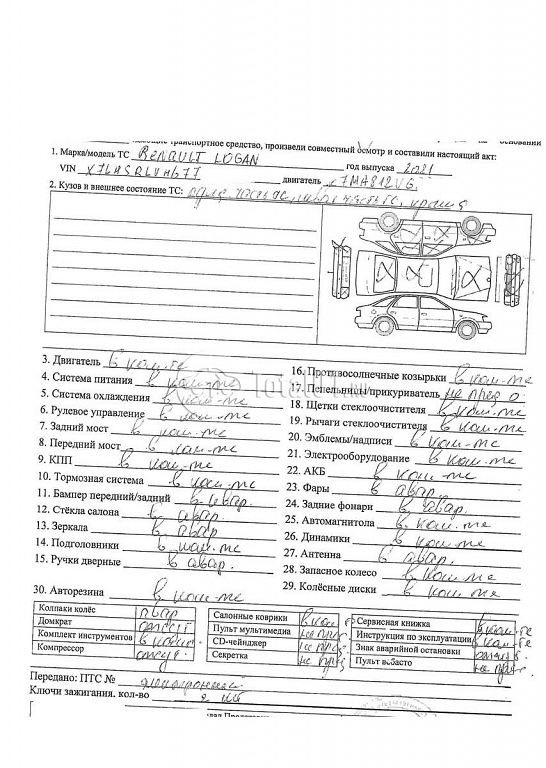 транспортное средство, произвели совместный осмотр и составили настоящий акт:
1. Марка/модель ТС RENAULT LOGAN год выпуска 2021
VIN двигатель
2. Кузов и внешнее состояние ТС:
3. Двигатель в ком-те
4. Система питания в ком-те
5. Система охлаждения в ком-те
6. Рулевое управление в ком-те
7. Задний мост в ком-те
8. Передний мост в ком-те
9. КПП в ком-те
10. Тормозная система в ком-те
11. Бампер передний/задний в авар
12. Стёкла салона в авар
13. Зеркала в авар
14. Подголовники в ком-те
15. Ручки дверные в авар.
16. Противосолнечные козырьки в ком-те
17. Пепельницы/прикуриватель не пред
18. Щетки стеклоочистителя в ком-те
19. Рычаги стеклоочистителя в ком-те
20. Эмблемы/надписи в ком-те
21. Электрооборудование в ком-те
22. АКБ в ком-те
23. Фары в авар.
24. Задние фонари в авар.
25. Автомагнитола в ком-те
26. Динамики в ком-те
27. Антенна в авар.
28. Запасное колесо в ком-те
29. Колёсные диски в ком-те
30. Авторезина в ком-те
Колпаки колёс авар
Домкрат
Комплект инструментов в ком
Компрессор
Салонные коврики в ком
Пульт мультимедиа не пред
CD-чейнджер не пред
Секретка не пред
Сервисная книжка в ком-те
Инструкция по эксплуатации в ком-те
Знак аварийной остановки
Пульт вебасто не пред
Передано: ПТС №
Ключи зажигания. кол-во 2